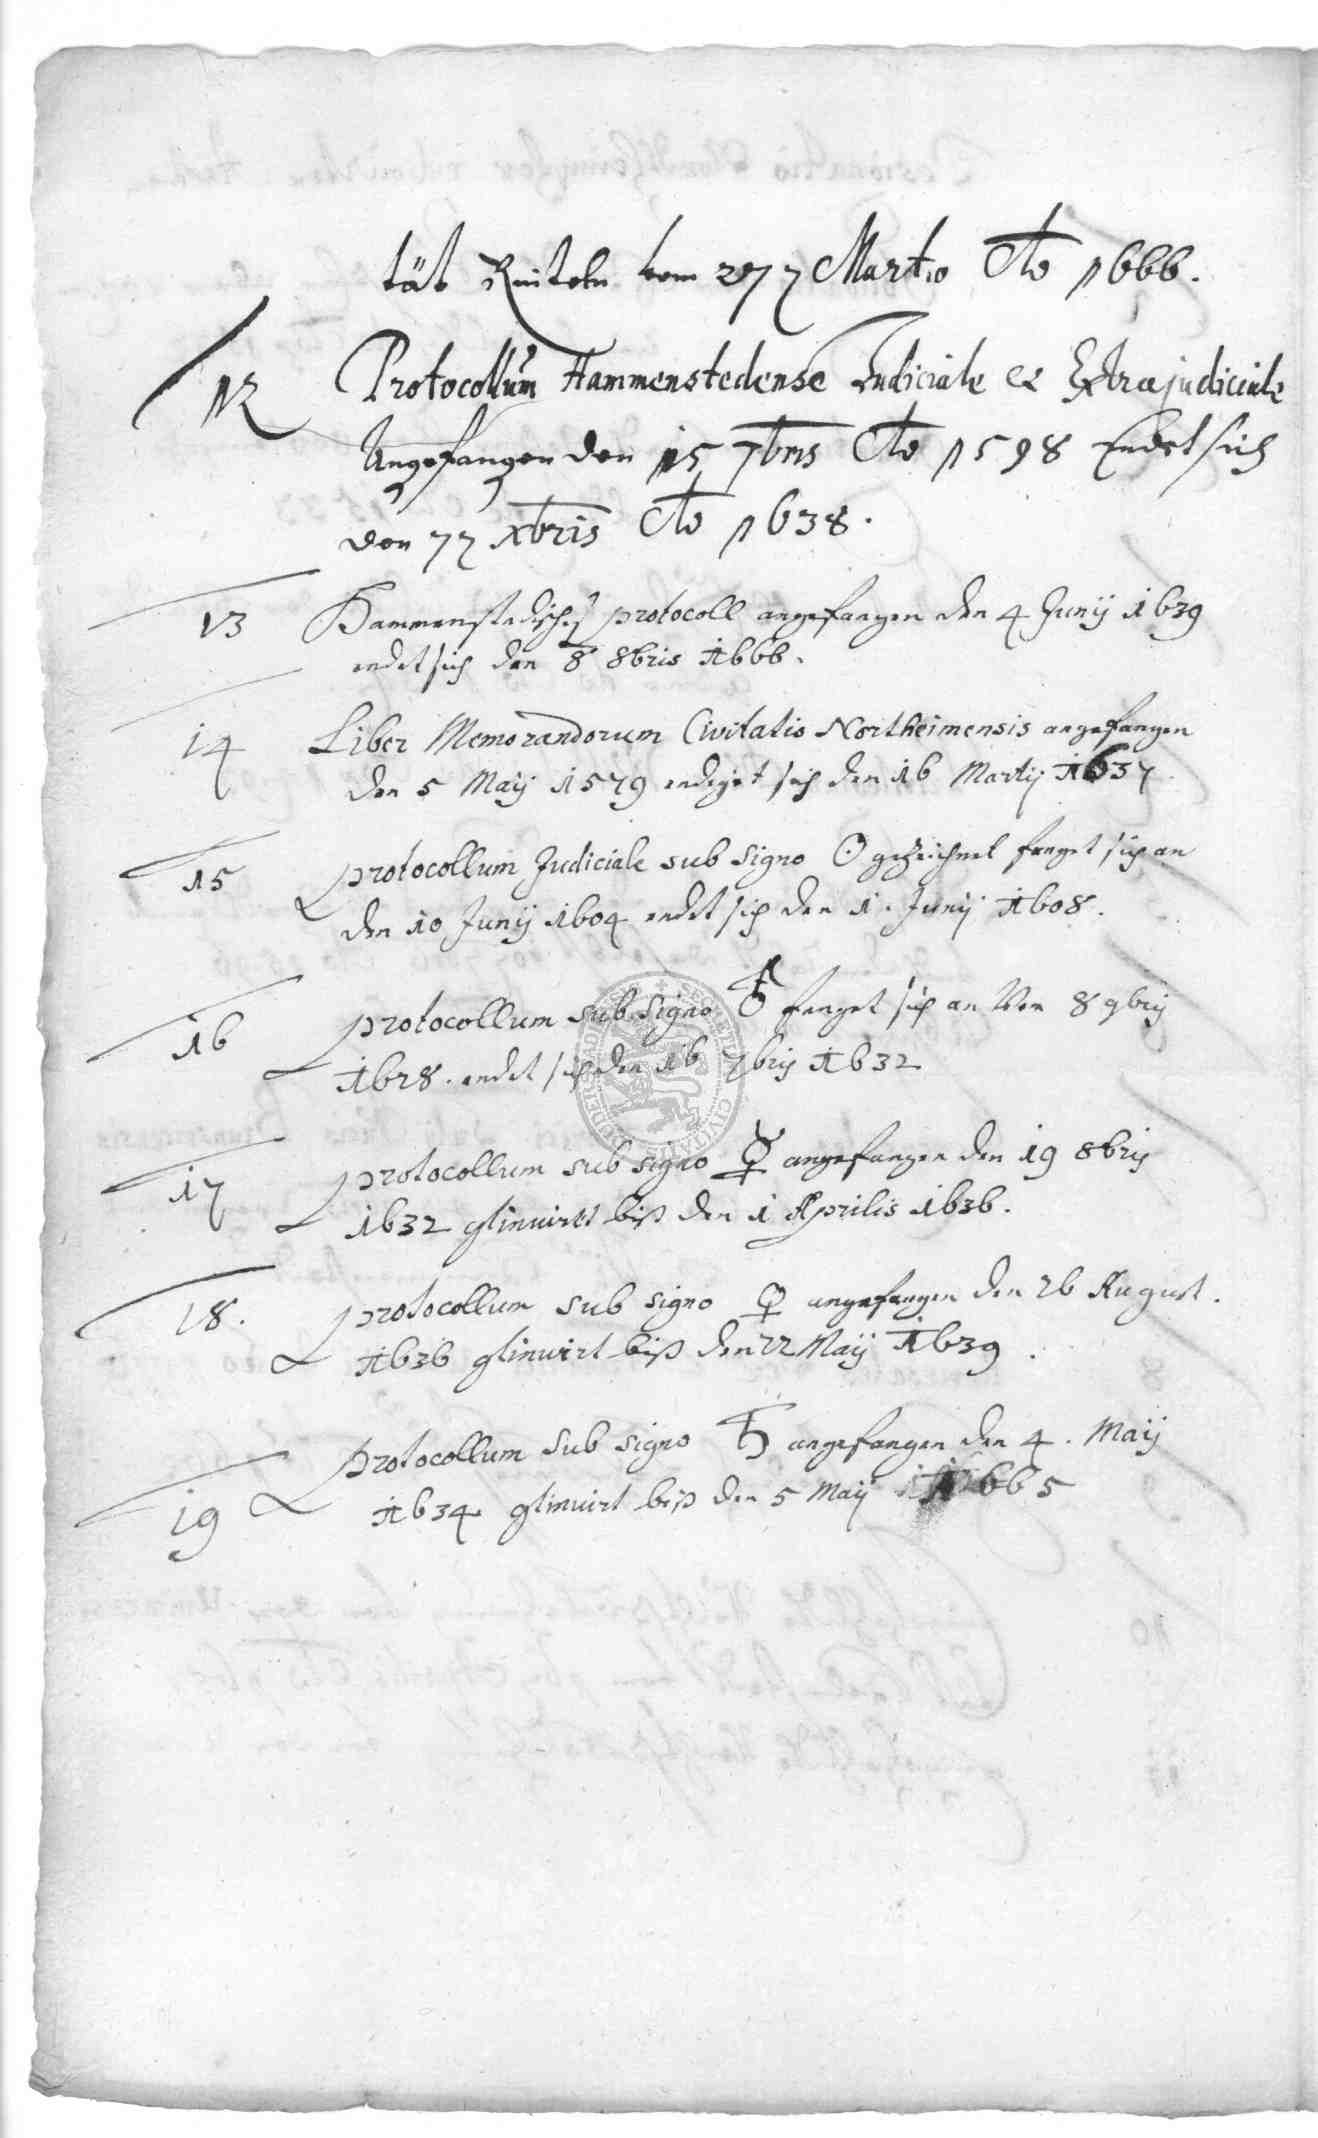 tät Rinteln vom 27 Martio Ao 1666.
12 Protocollum Hammenstedense Judiciale et Extrajudiciale
Angefangen den 15 7bris Ao 1598 Endet sich
den 22 Xbris Ao 1638.
13 Hammenstedisches protocoll angefangen den 4 Junij 1639
endet sich den 8 8bris 1666.
14 Liber Memorandorum Civitatis Northeimensis angefangen
den 5 Maij 1579 endiget sich den 16 Martij 1637.
15 protocollum Judiciale sub signo ☉ gezeichnet fanget sich an
den 10 Junij 1604 endet sich den 1. Junij 1608.
16 protocollum sub signo ♁ fanget sich an den 8 9brij
1628. endet sich den 16 7brij 1632
17 protocollum sub signo ☿ angefangen den 19 8brij
1632 biß den 1 Aprilis 1636.
18. protocollum sub signo ♀ angefangen den 26 August.
1636 biß den 22 Maij 1639.
19 protocollum sub signo ♄ angefangen den 4. Maij
1634 biß den 5 Maij 1665